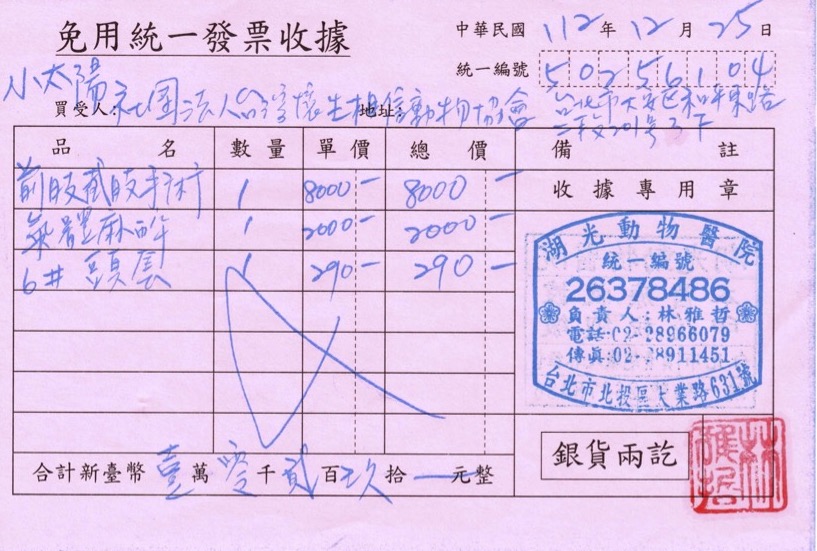 免用統一發票收據
中華民國 112 年 12 月 25 日
統一編號 50256104
小太陽
買受人: 社團法人台灣懷生相信動物協會 地址: 台北市大安區和平東路
二段201號3F
品名 數量 單價 總價 備註
前肢截肢手術 1 8000- 8000- 收據專用章
氣體麻醉 1 2000- 2000-
6# 頭套 1 290- 290-
湖光動物醫院
統一編號
26378486
負責人:林雅哲
電話:02-28966079
傳真:02-28911451
台北市北投區大業路631號
合計新臺幣 壹 萬 零 千 貳 百 玖 拾 — 元整
銀貨兩訖
林雅哲